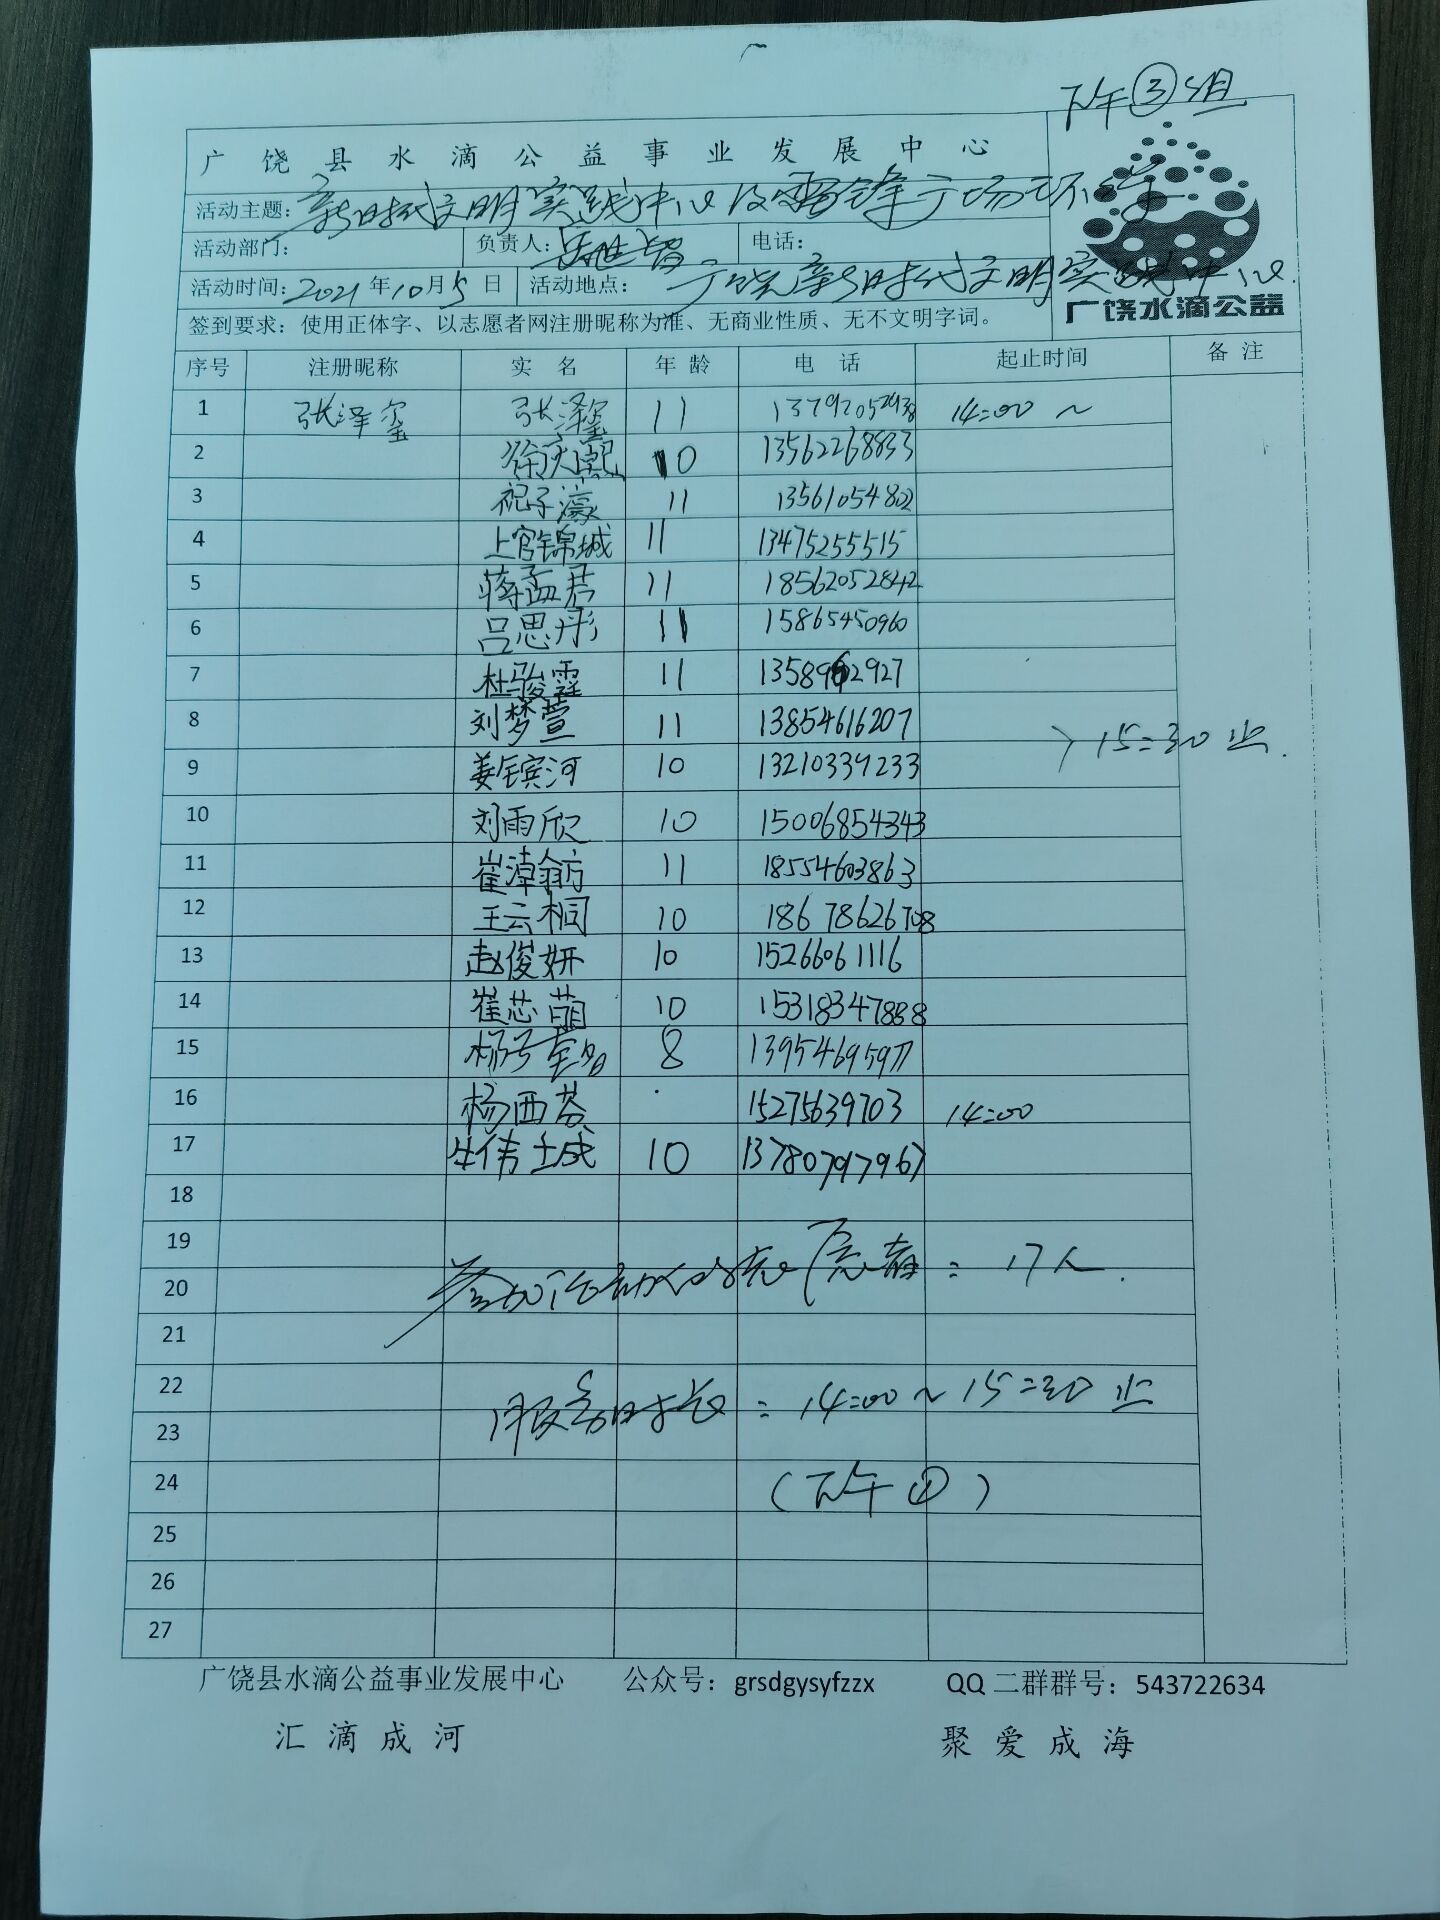 下午③组
广饶县水滴公益事业发展中心
活动主题：新时代文明实践中心及雷锋广场环
活动部门： 负责人： 电话：
活动时间：2021年10月5日 活动地点： 广饶新时代文明实践中心.
广饶水滴公益
签到要求：使用正体字、以志愿者网注册昵称为准、无商业性质、无不文明字词。
序号 注册昵称 实名 年龄 电话 起止时间 备注
1 张泽玺 张泽玺 11 14:00 ~
2 10 13562268833
3 祝子濠 11 13561054802
4 上官锦城 11 13475255515
5 蒋孟君 11 18562052842
6 吕思彤 11 15865450960
7 杜骏霆 11
8 刘梦萱 11 13854616207
> 15:30 止.
9 姜镔河 10 13210339233
10 刘雨欣 10 15006854343
11 11 18554603863
12 王云桐 10 18678626708
13 赵俊妍 10 15266061116
14 崔芯萌 10 15318347888
15 8 13954695977
16 杨西蓉 15275639703 14:00
17 10 13780797967
18
19
参加活动的志愿者：17人.
20
21
22
服务时长：14:00 ~ 15:30 止
23
24
(下午①)
25
26
27
广饶县水滴公益事业发展中心 公众号：grsdgysyfzzx QQ二群群号：543722634
汇滴成河 聚爱成海